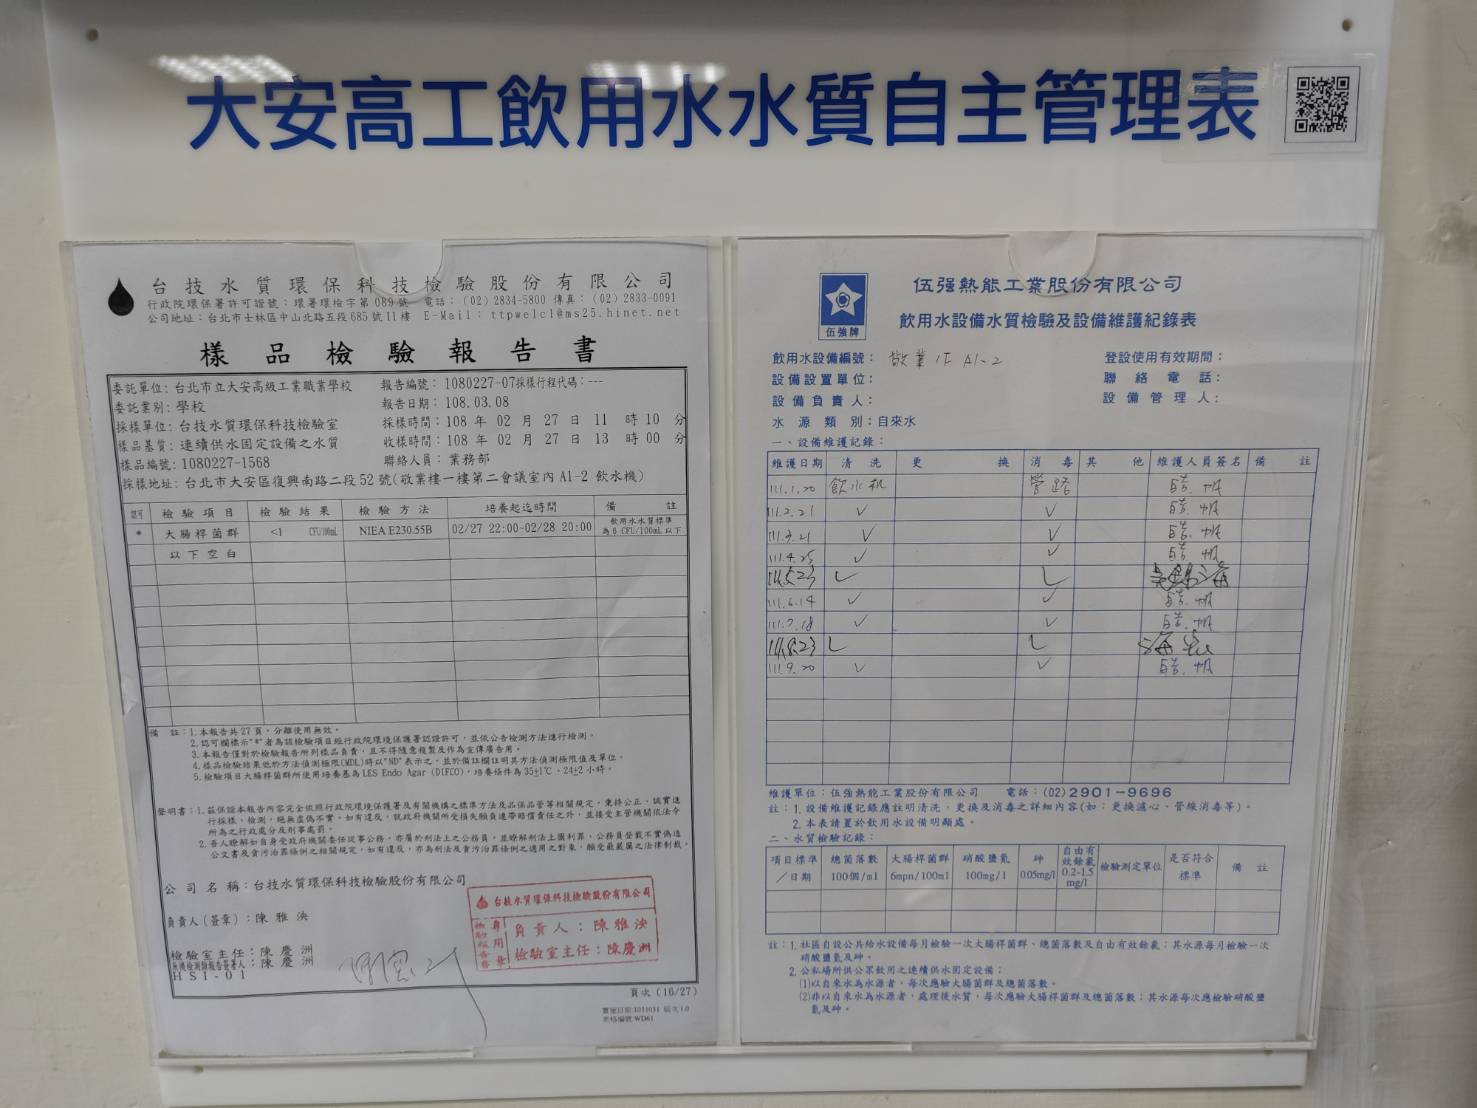 大安高工飲用水水質自主管理表
台技水質環保科技檢驗股份有限公司
行政院環保署許可證號：環署環檢字第089號 電話：(02)2834-5800 傳真：(02)2833-0091
公司地址：台北市士林區中山北路五段685號11樓 E-Mail：ttpwelcl@ms25.hinet.net
樣品檢驗報告書
委託單位：台北市立大安高級工業職業學校 報告編號：1080227-07採樣行程代碼：---
委託業別：學校 報告日期：108.03.08
採樣單位：台技水質環保科技檢驗室 採樣時間：108 年 02 月 27 日 11 時 10 分
樣品基質：連續供水固定設備之水質 收樣時間：108 年 02 月 27 日 13 時 00 分
樣品編號：1080227-1568 聯絡人員：業務部
採樣地址：台北市大安區復興南路二段52號(敬業樓一樓第二會議室內 A1-2 飲水機)
認可 檢驗項目 檢驗結果 檢驗方法 培養起迄時間 備註
* 大腸桿菌群 <1 CFU/100mL NIEA E230.55B 02/27 22:00-02/28 20:00 飲用水水質標準為6 CFU/100mL以下
以下空白
備註：1.本報告共27頁，分離使用無效。
2.認可欄標示"*"者為該檢驗項目經行政院環境保護署認證許可，並依公告檢測方法進行檢測。
3.本報告僅對於檢驗報告所列樣品負責，且不得隨意複製及作為宣傳廣告用。
4.樣品檢驗結果低於方法偵測極限(MDL)時以"ND"表示之，並於備註欄註明其方法偵測極限值及單位。
5.檢驗項目大腸桿菌群所使用培養基為LES Endo Agar (DIFCO)，培養條件為35±1℃、24±2小時。
聲明書：1.茲保證本報告內容完全依照行政院環境保護署及有關機構之標準方法及品保品管等相關規定，秉持公正、誠實進
行採樣、檢測，絕無虛偽不實，如有違反，就政府機關所受損失願負連帶賠償責任之外，並接受主管機關依法令
所為之行政處分及刑事處罰。
2.吾人瞭解如自身受政府機關委任從事公務，亦屬於刑法上之公務員，並瞭解刑法上圖利罪、公務員登載不實偽造
公文書及貪污治罪條例之相關規定，如有違反，亦為刑法及貪污治罪條例之適用之對象，願受最嚴厲之法律制裁。
公司名稱：台技水質環保科技檢驗股份有限公司
負責人(簽章)：陳雅泱
檢驗室主任：陳慶洲
無機檢測類報告簽署人：陳慶洲
HSI-01
台技水質環保科技檢驗股份有限公司
檢驗報告專用章
負責人：陳雅泱
檢驗室主任：陳慶洲
頁次(16/27)
實施日期:1011031 版次1.0
表格編號:WD61
伍強牌
伍强熱能工業股份有限公司
飲用水設備水質檢驗及設備維護紀錄表
飲用水設備編號：敬業1F A1-2 登設使用有效期間：
設備設置單位： 聯絡電話：
設備負責人： 設備管理人：
水源類別：自來水
一、設備維護記錄：
維護日期 清洗 更換 消毒 其他 維護人員簽名 備註
111.1.20 飲水机 管路
111.2.21 ✓ ✓
111.3.21 ✓ ✓
111.4.25 ✓ ✓
111.5.23 ✓ ✓
111.6.14 ✓ ✓
111.7.18 ✓ ✓
111.8.23 ✓ ✓
111.9.20 ✓ ✓
維護單位：伍強熱能工業股份有限公司 電話：(02)2901-9696
註：1.設備維護記錄應註明清洗、更換及消毒之詳細內容(如：更換濾心、管線消毒等)。
2.本表請置於飲用水設備明顯處。
二、水質檢驗記錄：
項目標準／日期 總菌落數100個/ml 大腸桿菌群6mpn/100ml 硝酸鹽氮100mg/l 砷0.05mg/l 自由有效餘氯0.2-1.5mg/l 檢驗測定單位 是否符合標準 備註
註：1.社區自設公共給水設備每月檢驗一次大腸桿菌群、總菌落數及自由有效餘氯；其水源每月檢驗一次
硝酸鹽氮及砷。
2.公私場所供公眾飲用之連續供水固定設備：
(1)以自來水為水源者，每次應驗大腸菌群及總菌落數。
(2)非以自來水為水源者，處理後水質，每次應驗大腸桿菌群及總菌落數；其水源每次應檢驗硝酸鹽
氮及砷。